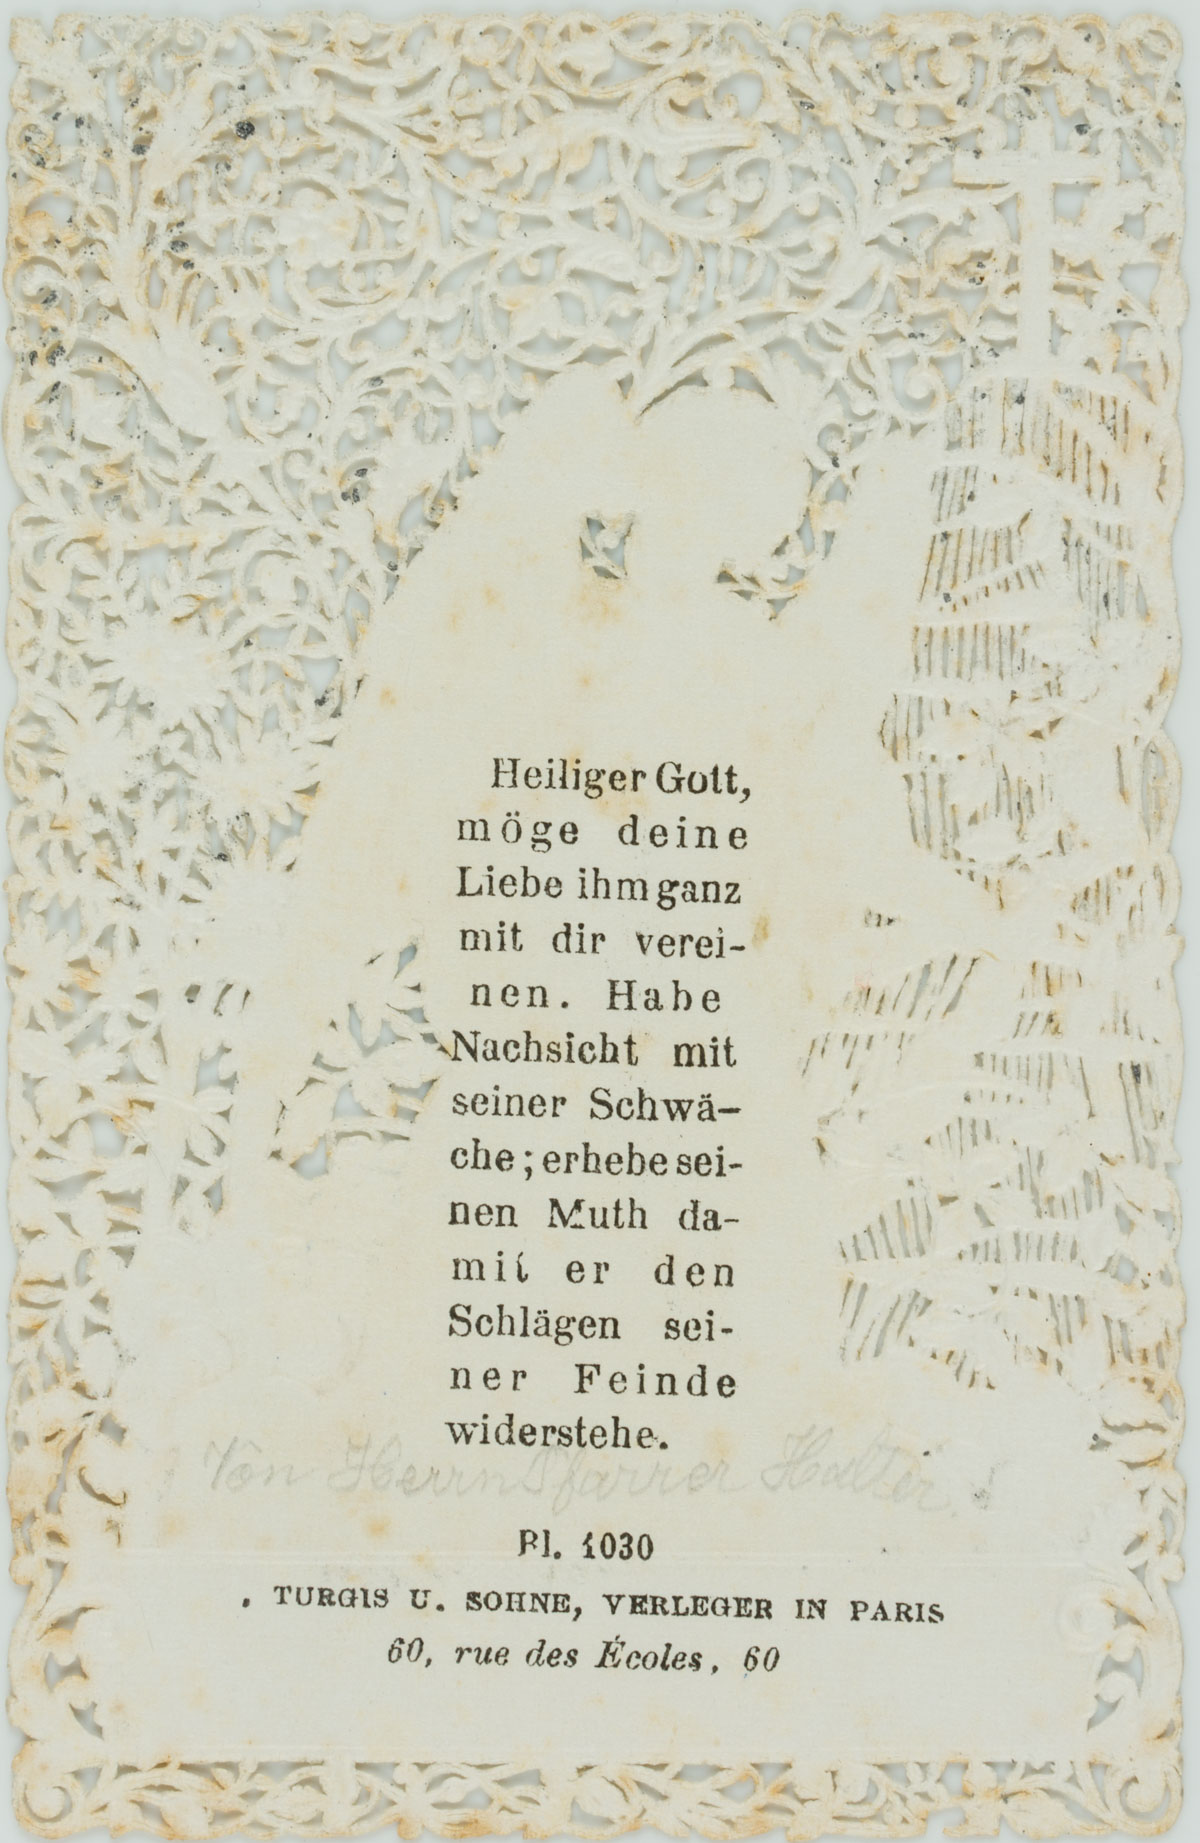 Heiliger Gott,
möge deine
Liebe ihm ganz
mit dir verei-
nen. Habe
Nachsicht mit
seiner Schwä-
che; erhebe sei-
nen Muth da-
mit er den
Schlägen sei-
ner Feinde
widerstehe.
Von Herrn Pfarrer
Bl. 1030
. TURGIS U. SOHNE, VERLEGER IN PARIS
60, rue des Écoles, 60